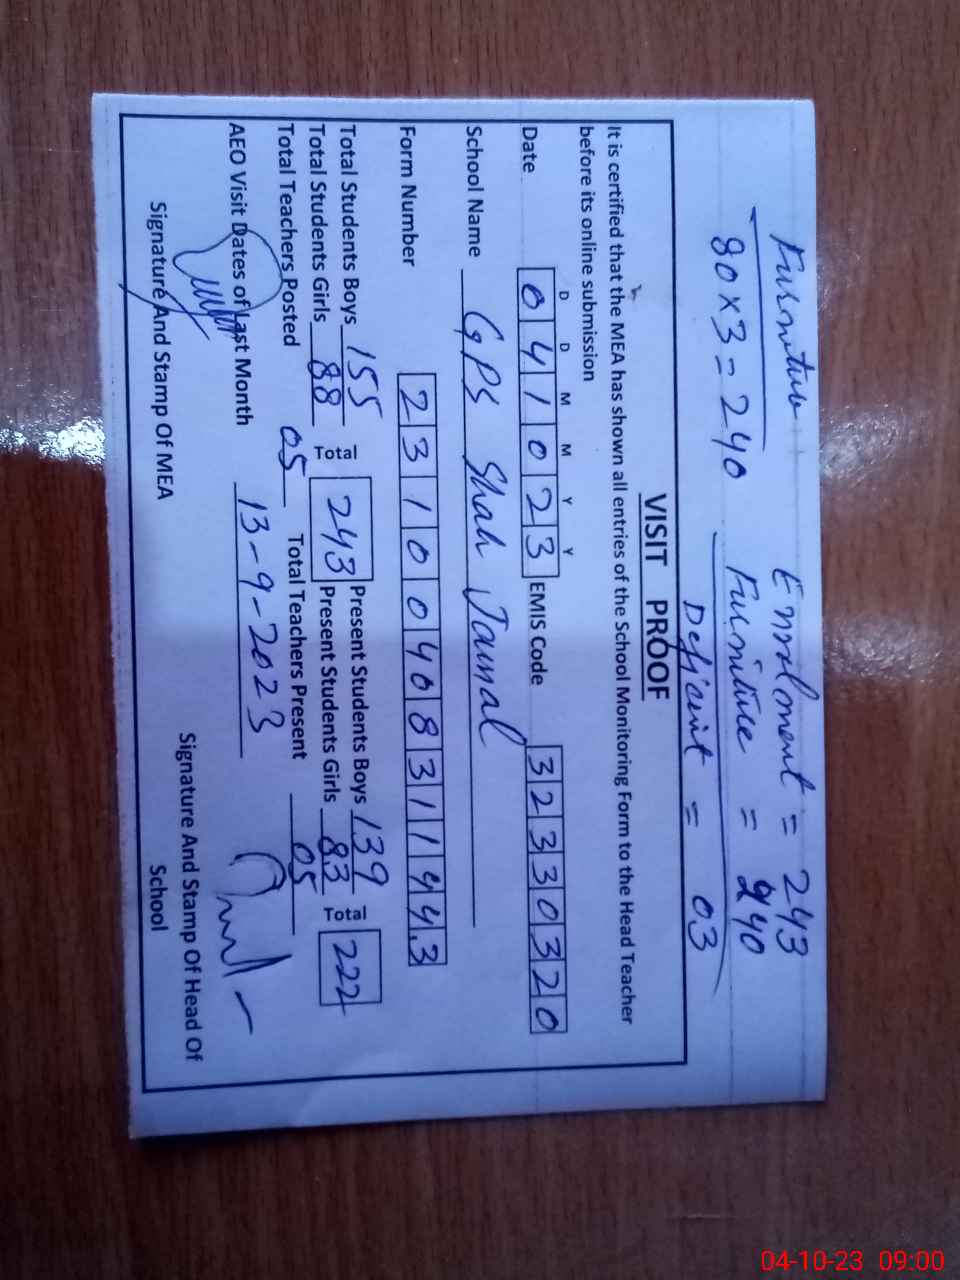 Furniture
80 x 3 = 240
Enrolment = 243
Furniture = 240
Deficient = 03
VISIT PROOF
It is certified that the MEA has shown all entries of the School Monitoring Form to the Head Teacher
before its online submission
D D M M Y Y
Date 041023 EMIS Code 32330320
School Name GPS Shah Jamal
Form Number 23100408311443
Total Students Boys 155 Total 243 Present Students Boys 139 Total 222
Total Students Girls 88 Present Students Girls 83
Total Teachers Posted 05 Total Teachers Present 05
AEO Visit Dates of last Month 13-9-2023
Signature And Stamp Of MEA
Signature And Stamp Of Head Of
School
04-10-23 09:00